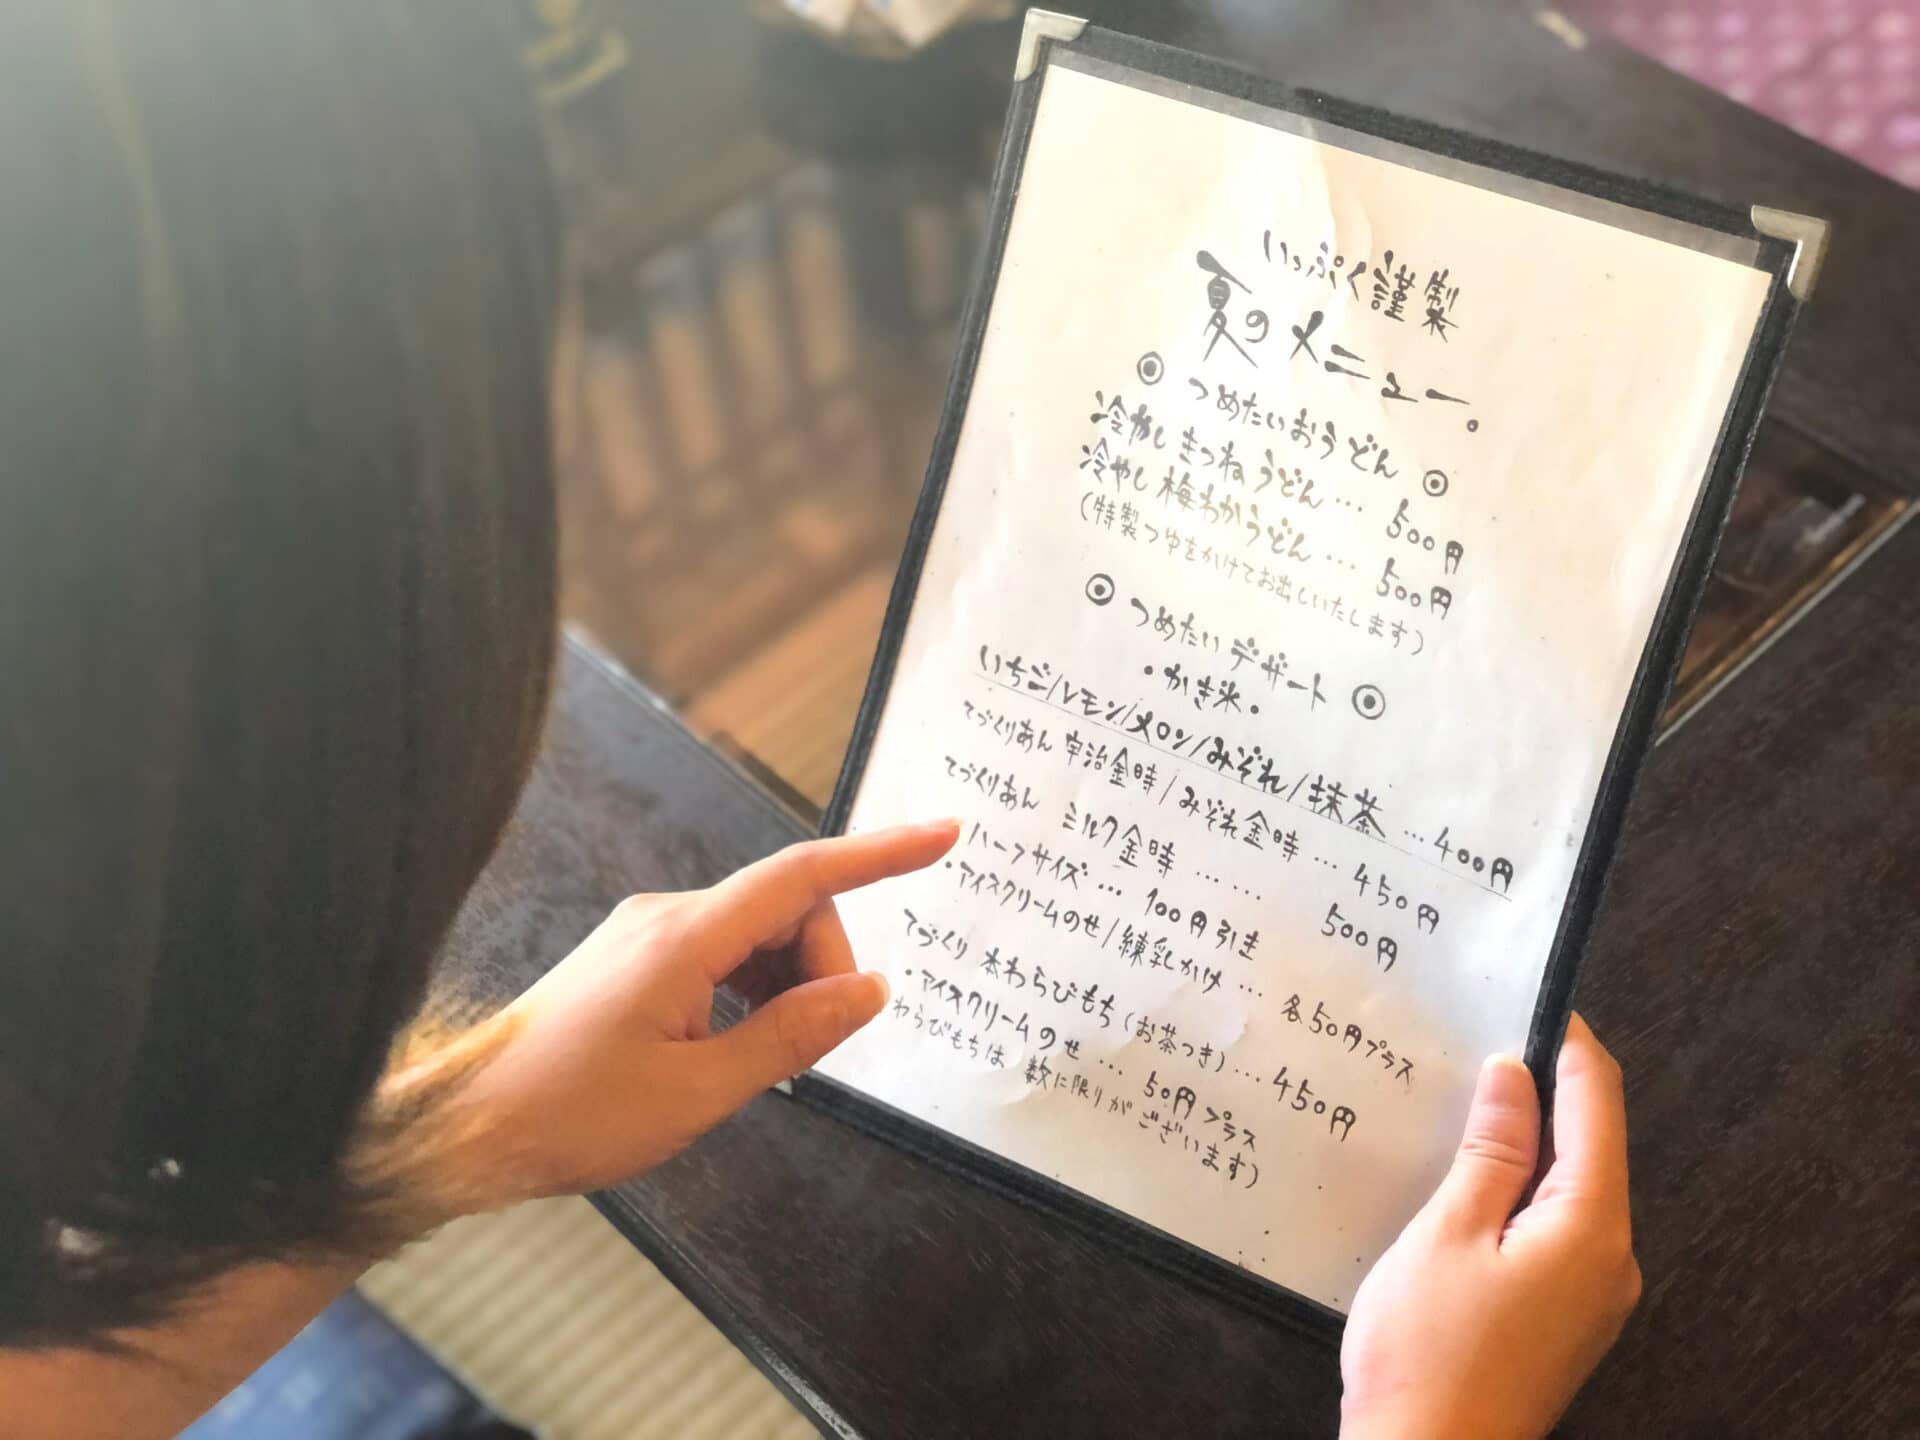 いっぷく謹製
夏のメニュー。
◎ つめたいおうどん ◎
冷やしきつねうどん… 500円
冷やし梅わかうどん… 500円
(特製つゆをかけてお出しいたします)
◎ つめたいデザート ◎
・かき氷・
いちご/レモン/メロン/みぞれ/抹茶…400円
てづくりあん 宇治金時/みぞれ金時… 450円
てづくりあん ミルク金時…… 500円
ハーフサイズ… 100円引き
・アイスクリームのせ/練乳かけ… 各50円プラス
てづくり 本わらびもち(お茶つき)… 450円
・アイスクリームのせ… 50円プラス
わらびもちは 数に限りがございます)